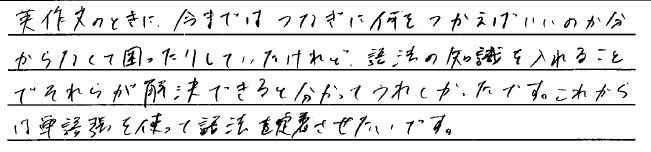 英作文のときに、今まではつなぎに何をつかえばいいのか分
からなくて困ったりしていたけれど、語法の知識を入れること
でそれらが解決できると分かってうれしかったです。これから
は単語張を使って語法を定着させたいです。